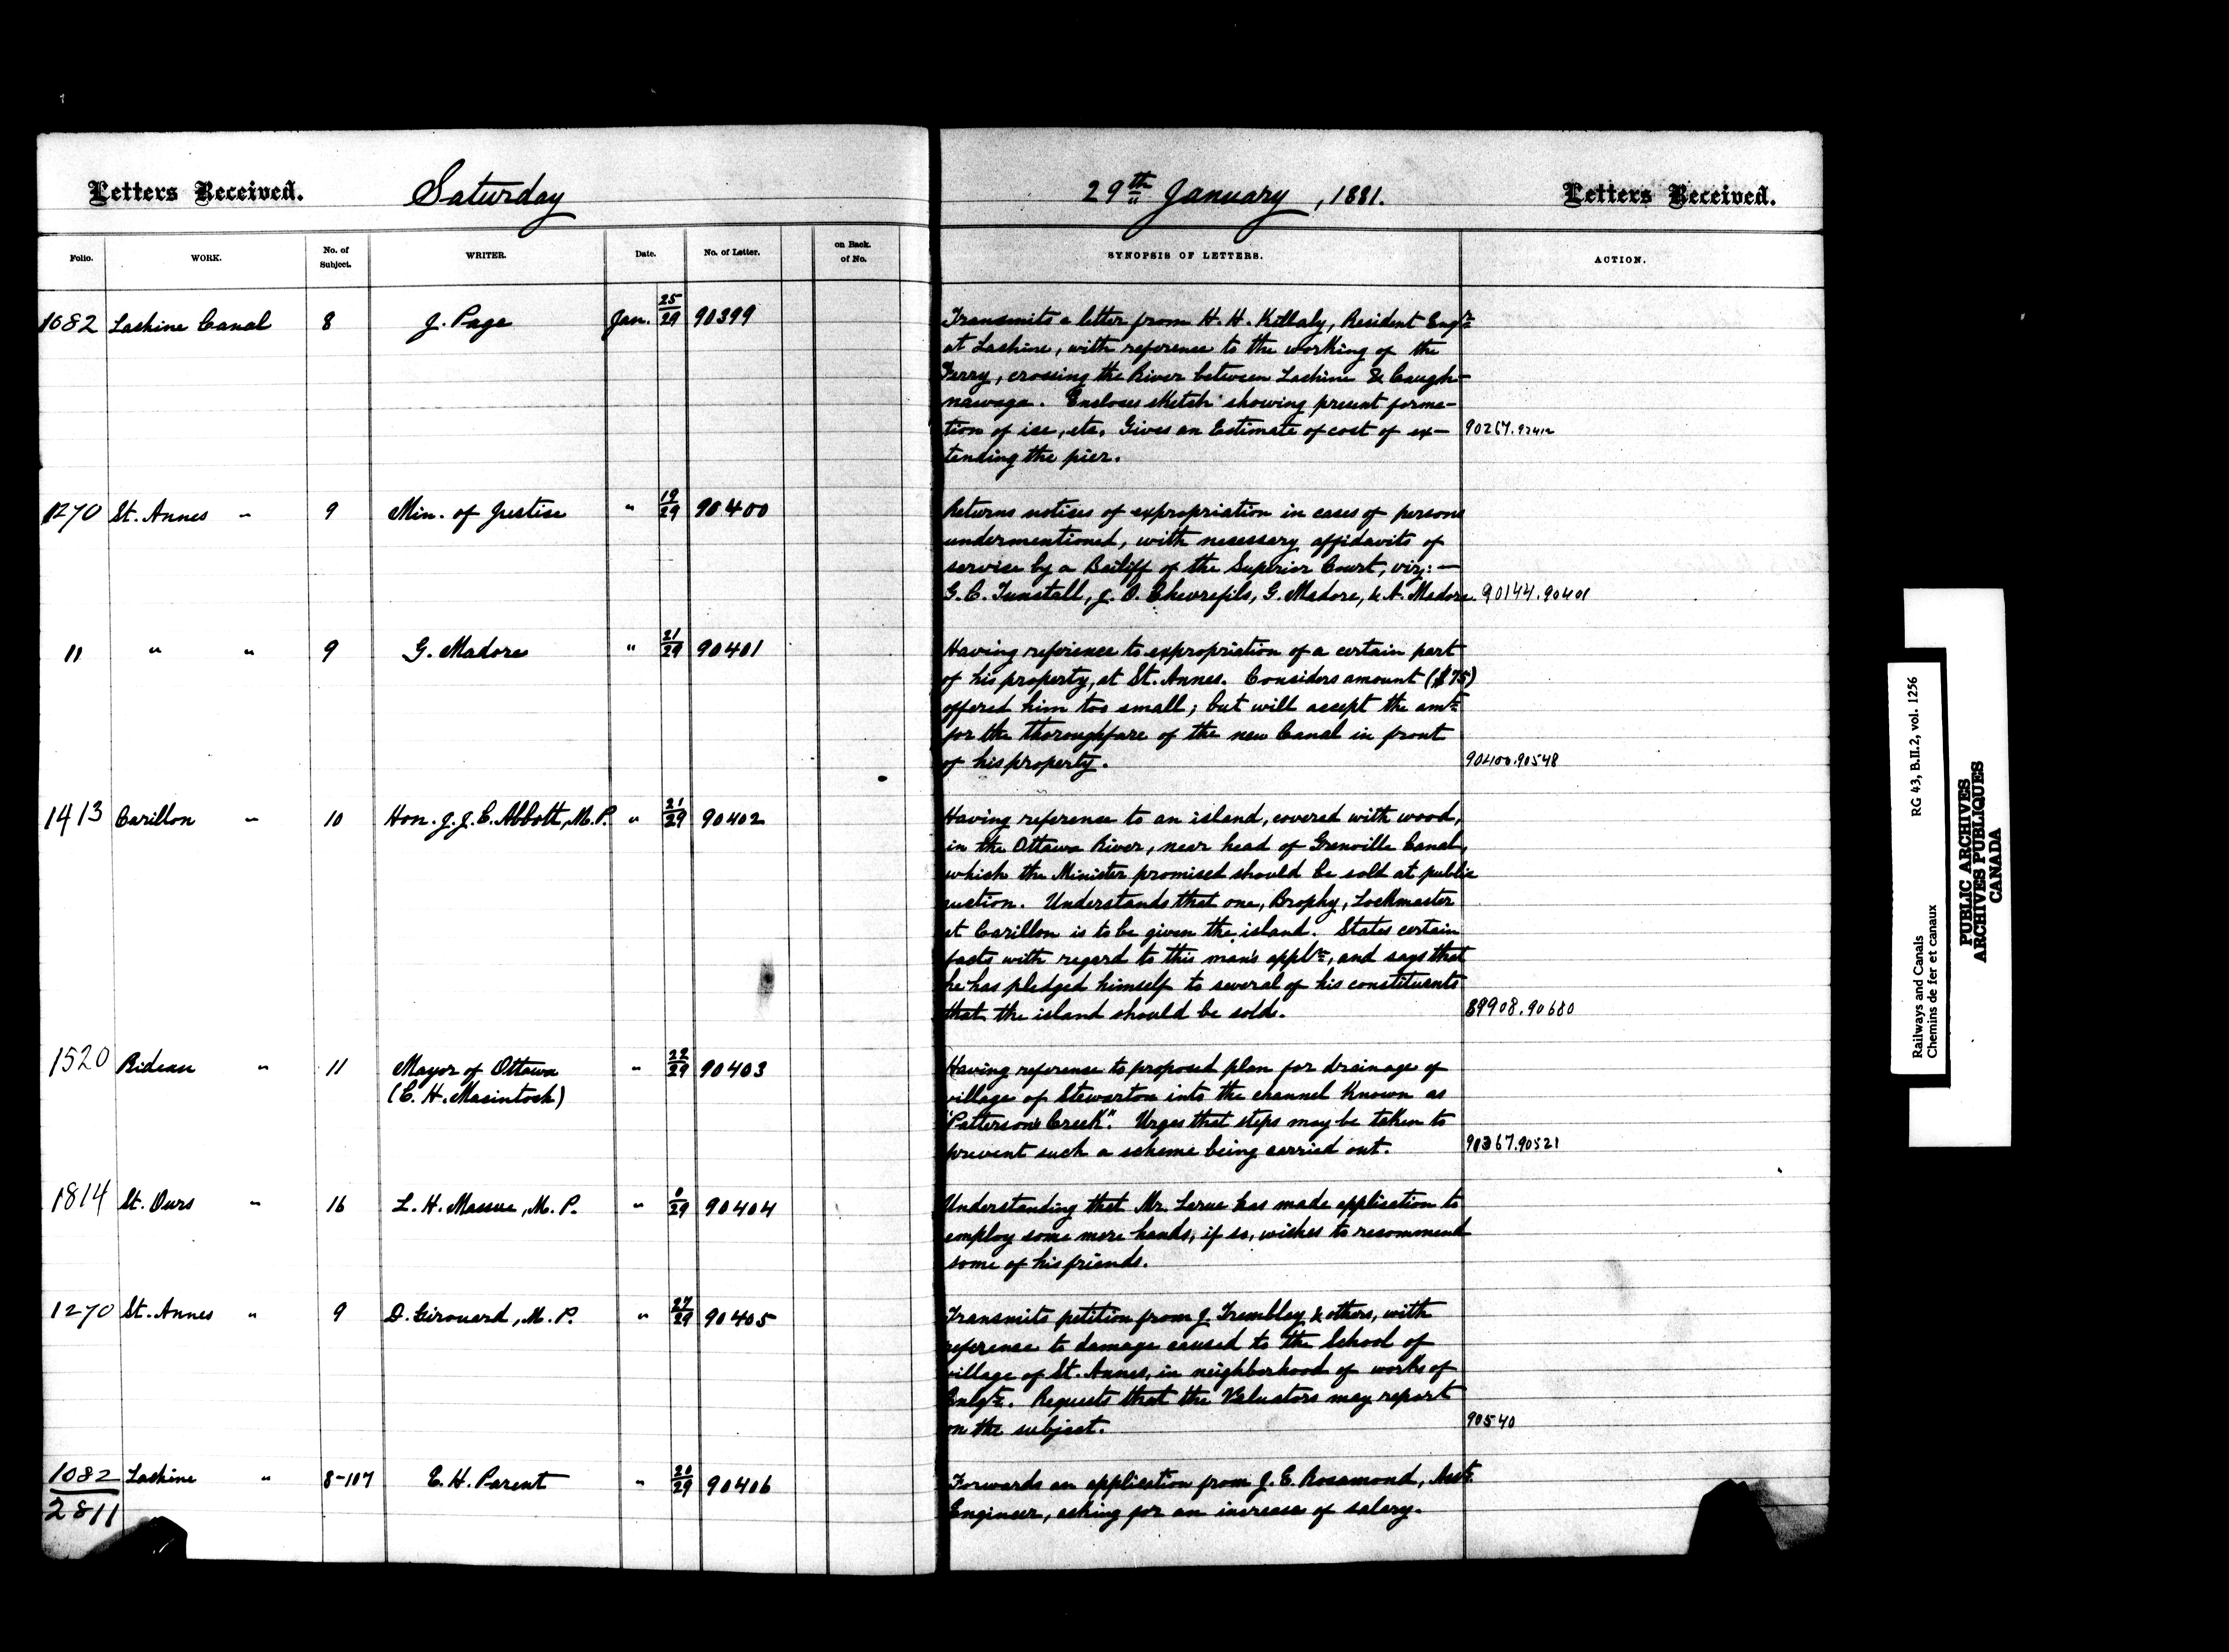 Letters Received. Saturday 29th January, 1881. Letters Received.
Folio. WORK. No. of Subject. WRITER. Date. No. of Letter. on Back. of No. SYNOPSIS OF LETTERS. ACTION.
1082 Lachine Canal 8 J. Page Jan. 25/29 90399 Transmits a letter from H. H. Killaly, Resident Engr.
at Lachine, with reference to the working of the
Ferry, crossing the River between Lachine & Caugh-
nawaga. Encloses sketch showing present forma-
tion of ice, etc. Gives an Estimate of cost of ex- 90267.92412
tending the pier.
1270 St. Annes " 9 Min. of Justice " 19/29 90400 Returns notices of expropriation in cases of persons
undermentioned, with necessary affidavits of
service by a Bailiff of the Superior Court, viz:—
G. C. Tunstall, J. O. Chevrefils, G. Madore, & A. Madore. 90144.90401
" " " 9 G. Madore " 21/29 90401 Having reference to expropriation of a certain part
of his property, at St. Annes. Considers amount ($75)
offered him too small; but will accept the amt.
for the thoroughfare of the new Canal in front
of his property. 90400.90548
1413 Carillon " 10 Hon. J. J. C. Abbott, M.P. " 21/29 90402 Having reference to an island, covered with wood,
in the Ottawa River, near head of Grenville Canal,
which the Minister promised should be sold at public
auction. Understands that one, Brophy, Lockmaster
at Carillon is to be given the island. States certain
facts with regard to this man's appln., and says that
he has pledged himself to several of his constituents
that the island should be sold. 89908.90680
1520 Rideau " 11 Mayor of Ottawa " 22/29 90403 Having reference to proposed plan for drainage of
(C. H. Macintosh) village of Stewarton into the channel known as
"Patterson's Creek". Urges that steps may be taken to
prevent such a scheme being carried out. 90367.90521
1814 St. Ours " 16 L. H. Massue, M.P. " 0/29 90404 Understanding that Mr. Larue has made application to
employ some more hands, if so, wishes to recommend
some of his friends.
1270 St. Annes " 9 D. Girouard, M.P. " 27/29 90405 Transmits petition from J. Trembley & others, with
reference to damage caused to the School of
village of St. Annes, in neighborhood of works of
Enlgt. Requests that the Valuators may report
on the subject. 90540
1082/2811 Lachine " 8-107 E. H. Parent " 20/29 90406 Forwards an application from J. E. Rosamond, Asst.
Engineer, asking for an increase of salary.
Railways and Canals RG 43, B.II.2, vol. 1256
Chemins de fer et canaux
PUBLIC ARCHIVES
ARCHIVES PUBLIQUES
CANADA